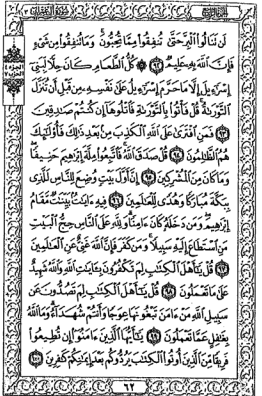 لَن تَنَالُوا۟ ٱلْبِرَّ حَتَّىٰ تُنفِقُوا۟ مِمَّا تُحِبُّونَ ۚ وَمَا تُنفِقُوا۟ مِن شَىْءٍ
فَإِنَّ ٱللَّهَ بِهِۦ عَلِيمٌ ٩٢ كُلُّ ٱلطَّعَامِ كَانَ حِلًّا لِّبَنِىٓ
إِسْرَٰٓءِيلَ إِلَّا مَا حَرَّمَ إِسْرَٰٓءِيلُ عَلَىٰ نَفْسِهِۦ مِن قَبْلِ أَن تُنَزَّلَ
ٱلتَّوْرَىٰةُ ۗ قُلْ فَأْتُوا۟ بِٱلتَّوْرَىٰةِ فَٱتْلُوهَآ إِن كُنتُمْ صَٰدِقِينَ
٩٣ فَمَنِ ٱفْتَرَىٰ عَلَى ٱللَّهِ ٱلْكَذِبَ مِنۢ بَعْدِ ذَٰلِكَ فَأُو۟لَٰٓئِكَ
هُمُ ٱلظَّٰلِمُونَ ٩٤ قُلْ صَدَقَ ٱللَّهُ ۗ فَٱتَّبِعُوا۟ مِلَّةَ إِبْرَٰهِيمَ حَنِيفًا
وَمَا كَانَ مِنَ ٱلْمُشْرِكِينَ ٩٥ إِنَّ أَوَّلَ بَيْتٍ وُضِعَ لِلنَّاسِ لَلَّذِى
بِبَكَّةَ مُبَارَكًا وَهُدًى لِّلْعَٰلَمِينَ ٩٦ فِيهِ ءَايَٰتٌۢ بَيِّنَٰتٌ مَّقَامُ
إِبْرَٰهِيمَ ۖ وَمَن دَخَلَهُۥ كَانَ ءَامِنًا ۗ وَلِلَّهِ عَلَى ٱلنَّاسِ حِجُّ ٱلْبَيْتِ
مَنِ ٱسْتَطَاعَ إِلَيْهِ سَبِيلًا ۚ وَمَن كَفَرَ فَإِنَّ ٱللَّهَ غَنِىٌّ عَنِ ٱلْعَٰلَمِينَ
٩٧ قُلْ يَٰٓأَهْلَ ٱلْكِتَٰبِ لِمَ تَكْفُرُونَ بِـَٔايَٰتِ ٱللَّهِ وَٱللَّهُ شَهِيدٌ
عَلَىٰ مَا تَعْمَلُونَ ٩٨ قُلْ يَٰٓأَهْلَ ٱلْكِتَٰبِ لِمَ تَصُدُّونَ عَن
سَبِيلِ ٱللَّهِ مَنْ ءَامَنَ تَبْغُونَهَا عِوَجًا وَأَنتُمْ شُهَدَآءُ ۗ وَمَا ٱللَّهُ
بِغَٰفِلٍ عَمَّا تَعْمَلُونَ ٩٩ يَٰٓأَيُّهَا ٱلَّذِينَ ءَامَنُوٓا۟ إِن تُطِيعُوا۟
فَرِيقًا مِّنَ ٱلَّذِينَ أُوتُوا۟ ٱلْكِتَٰبَ يَرُدُّوكُم بَعْدَ إِيمَٰنِكُمْ كَٰفِرِينَ ١٠٠
٦٢